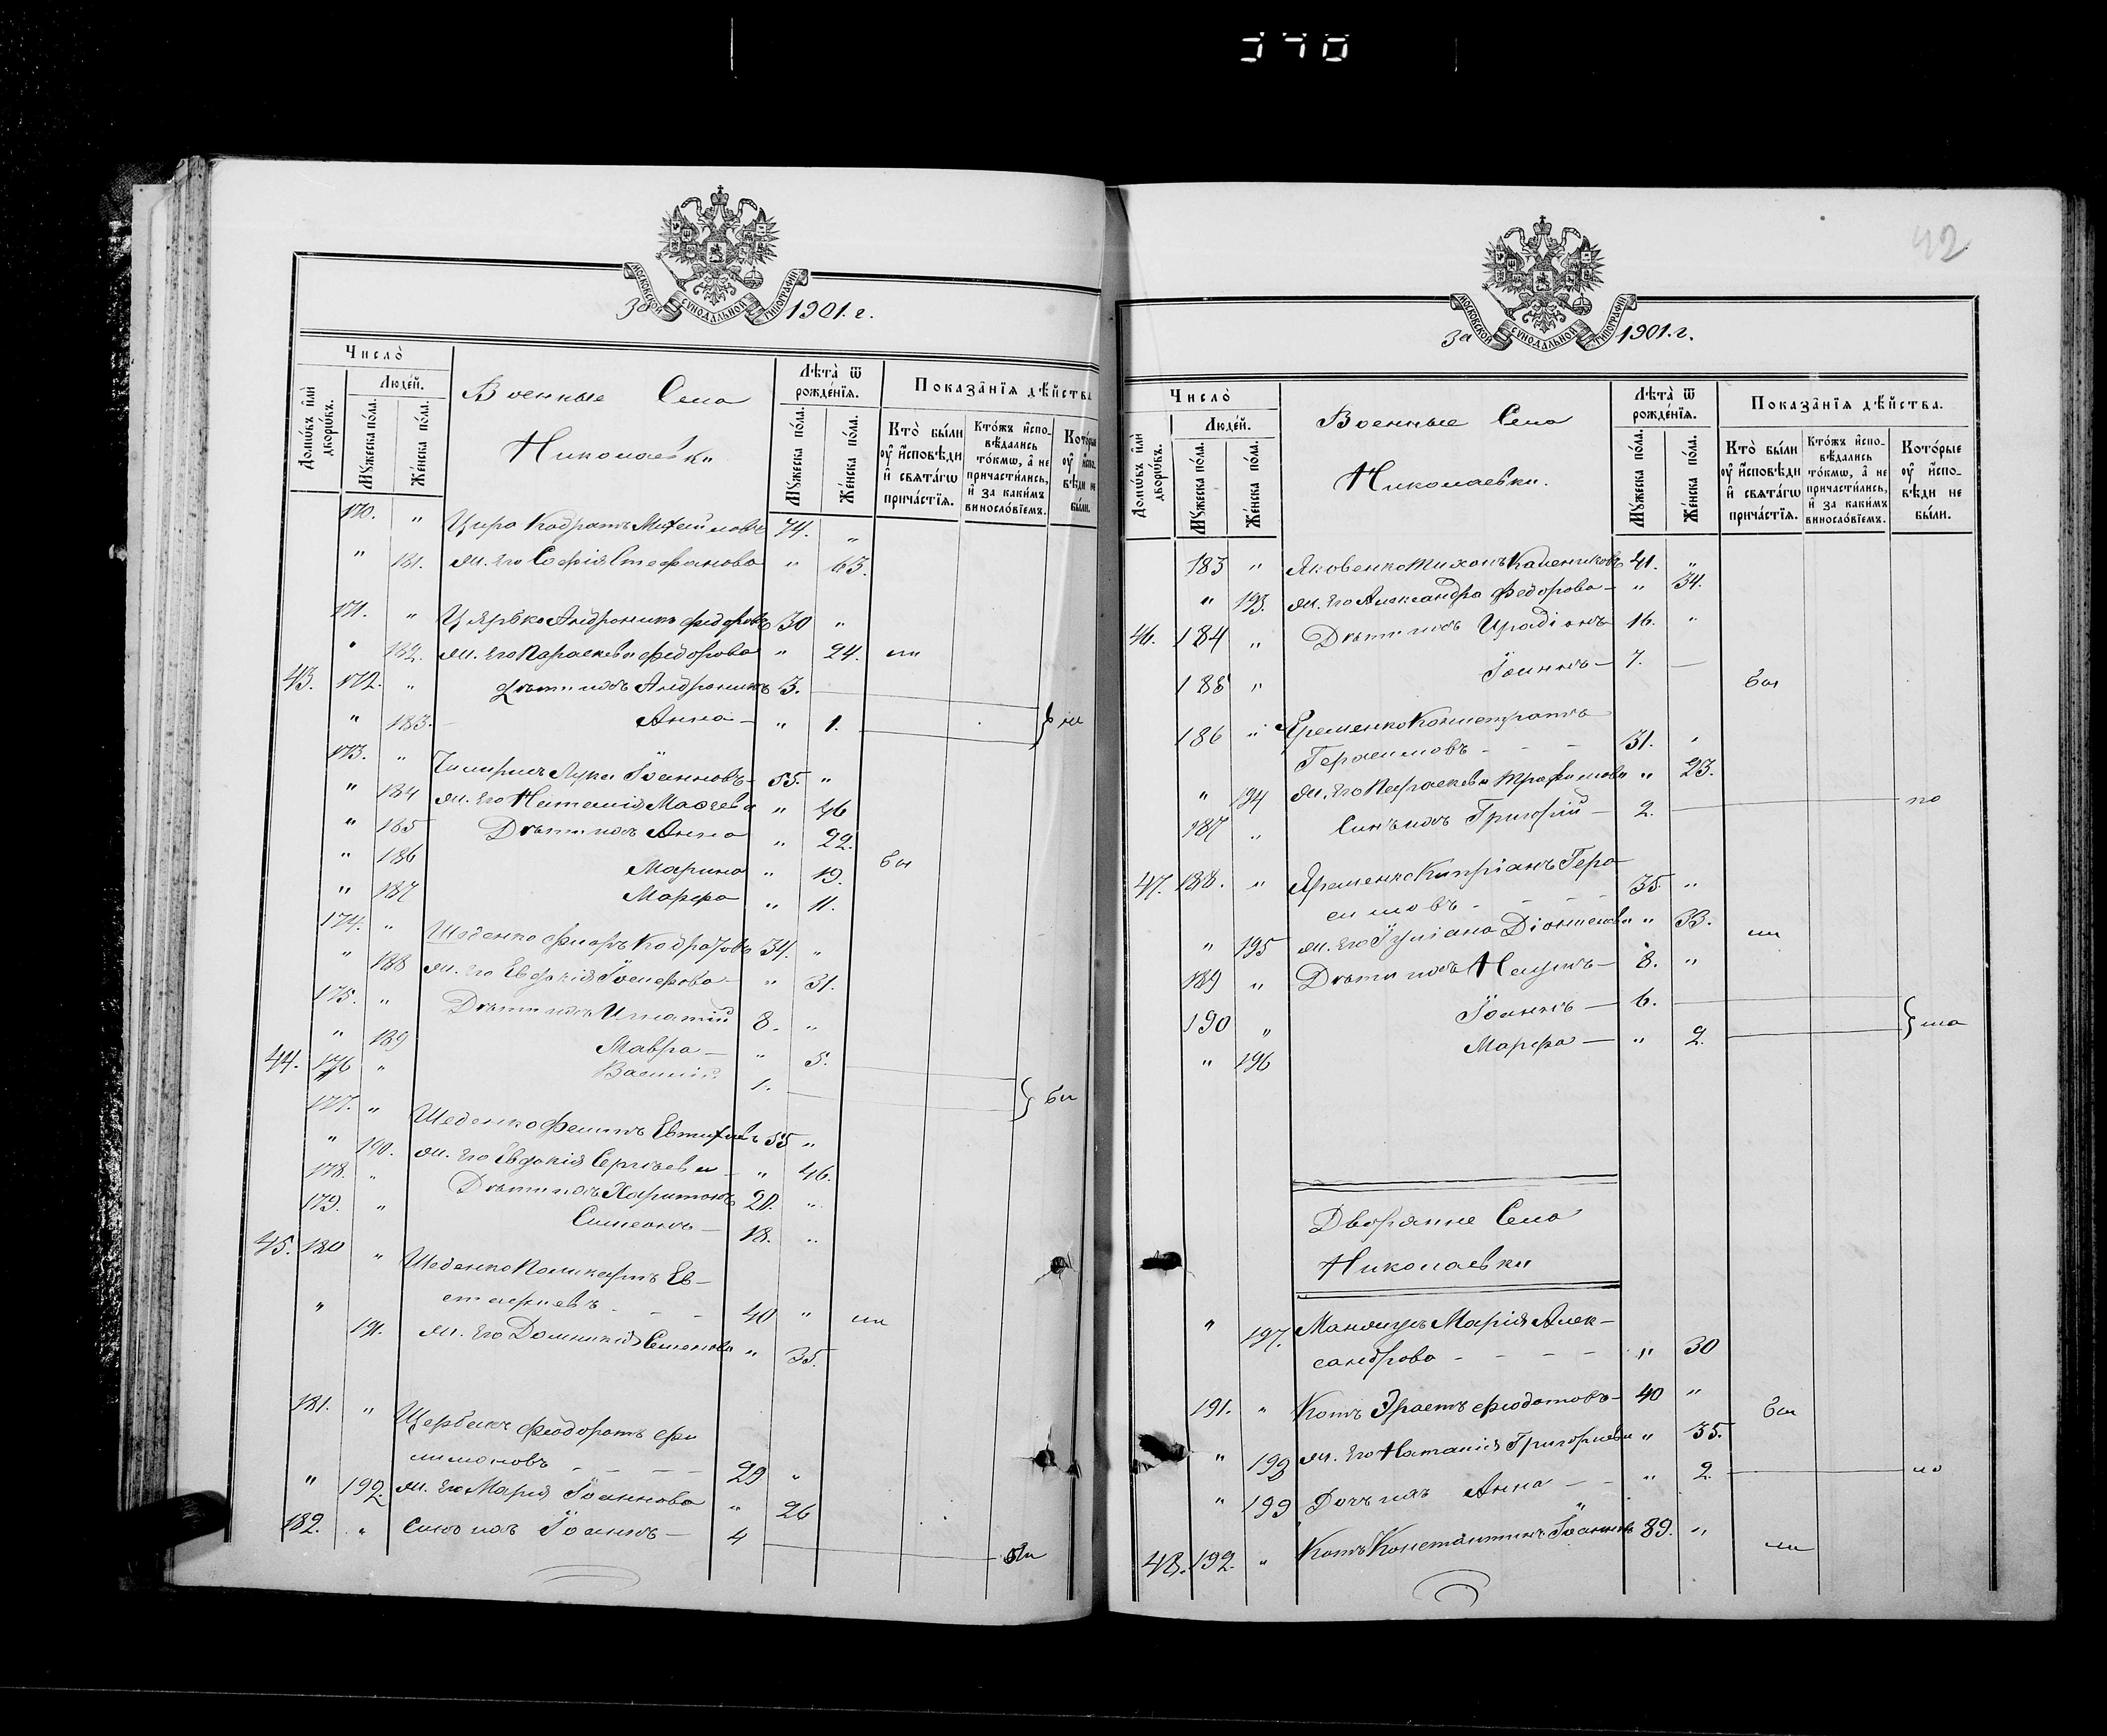 370
МОСКОВСКОЙ СѴНОДАЛЬНОЙ ТИПОГРАФІИ
За 1901. г.
Число̀
Домѡ́въ и҆лѝ дворѡ́въ.
Люде́й.
Мꙋ́жеска по́ла.
Же́нска по́ла.
Военные Села
Николаевки
Лѣта̀ ѿ рожде́нїя.
Мꙋ́жеска по́ла.
Же́нска по́ла.
Показа̑нїя дѣ́йства
Кто̀ бы́ли ᲂу҆ и҆́сповѣди и҆ свята́гѡ прича́стїя.
Кто́жъ и҆спо-вѣ́дались то́кмѡ, а҆ не причасти́лись, и҆ за каки́мъ винословїемъ.
170. „ Михеимовъ 74. „
„ 181. ж. его Софія Стефанова „ 63.
171. „ Андроникъ Федоровъ 30 „
„ 182. ж. его Параскева Федорова „ 24. ли
43. 172. „ Дѣти ихъ Андроникъ 3.
„ 183. Анна — „ 1.
173. „ Лука Іоанновъ 55. „
„ 184 ж. его Наталія „ 46
„ 185 Дѣти ихъ Анна „ 22.
„ 186 Марина „ 19. бы
„ 187 Марфа „ 11.
174. „ Шеденко 34. „
„ 188 ж. его Евдокія Іосифова „ 31.
175. „ Дѣти ихъ Игнатій 8. „
„ 189 Мавра — „ 5.
44. 176 „ Василій 1.
177. „ Шеденко 55 „
„ 190. ж. его Евдокія Сергіева — „ 46.
178. „ Дѣти ихъ Харитонъ 20. „
179. „ Симеонъ — 18. „
45. 180 „ Шеденко Поликарпъ Ев-
стафіевъ - - - 40 „ ли
„ 191. ж. его Домникія Семенова „ 35.
181. „ Щербакъ Фи
лимоновъ - - - 29 „
„ 192. ж. его Марія Іоаннова „ 26
182. „ Сынъ ихъ Іоаннъ — 4
42
МОСКОВСКОЙ СѴНОДАЛЬНОЙ ТИПОГРАФІИ
За 1901. г.
Число̀
Домѡ́въ и҆лѝ дворѡ́въ.
Люде́й.
Мꙋ́жеска по́ла.
Же́нска по́ла.
Военные Села
Николаевки.
Лѣта̀ ѿ рожде́нїя.
Мꙋ́жеска по́ла.
Же́нска по́ла.
Показа̑нїя дѣ́йства.
Кто̀ бы́ли ᲂу҆ и҆́сповѣди и҆ свята́гѡ прича́стїя.
Кто́жъ и҆спо-вѣ́дались то́кмѡ, а҆ не причасти́лись, и҆ за каки́мъ винословїемъ.
Кото́рые ᲂу҆ и҆́спо-вѣди не бы́ли.
183 „ Яковенко Тихонъ Каленниковъ 41. „
„ 193. ж. его Александра Федорова — „ 34.
46. 184 „ Дѣти ихъ Иродіонъ 16. „
185 „ Іоаннъ — 7. — бы
186 „ Яременко
Герасимовъ - - - 31. „
„ 194 ж. его Параскева Трофимова „ 23.
187 „ Сынъ ихъ Григорій — 2.
47. 188. „ Яременко Кипріанъ Гера
симовъ - - - 35. „
„ 195 ж. его Іуліана Діонисіева „ 33. ли
189 „ Дѣти ихъ Наумъ — 8. „
190 „ Іоаннъ — 6.
„ 196 Марфа — „ 2.
Дворяне Села
Николаевки
„ 197. Марія Алек-
сандрова - - - - „ 30
191. „ Котъ Эрастъ Федотовъ — 40 „ бы
„ 198 ж. его Наталія Григориева „ 35.
„ 199 Дочь ихъ Анна - - „ 2
48. 192. „ Котъ Константинъ Іоанновъ 39. „ ли